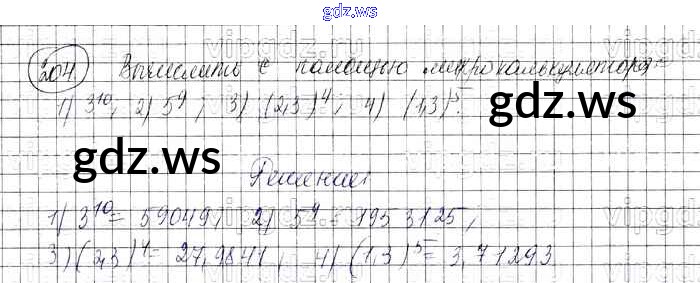 gdz.ws
204. Вычислить с помощью микрокалькулятора:
1) 3¹⁰; 2) 5⁹; 3) (2,3)⁴; 4) (1,3)⁵.
gdz.ws
gdz.ws
Решение:
1) 3¹⁰ = 59049, 2) 5⁹ = 1953125,
3) (2,3)⁴ = 27,9841, 4) (1,3)⁵ = 3,71293
gdz.ws